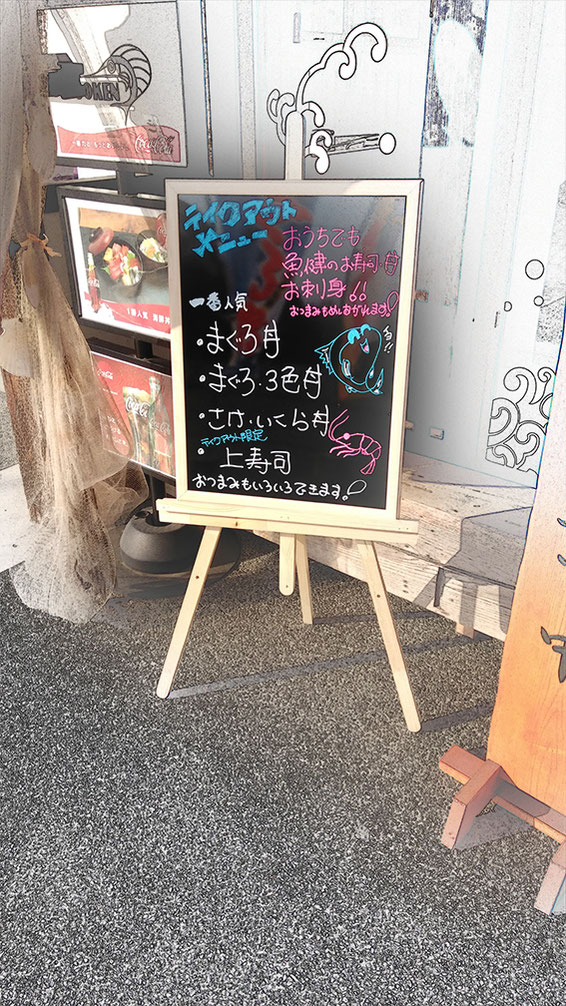 テイクアウト
メニュー
おうちでも
魚健のお寿司・丼
お刺身!!
おつまみもめしあがれます!
一番人気
・まぐろ丼
・まぐろ・3色丼
・さけ・いくら丼
テイクアウト限定
・上寿司
おつまみもいろいろできます!
Coca-Cola
1番人気 海鮮丼